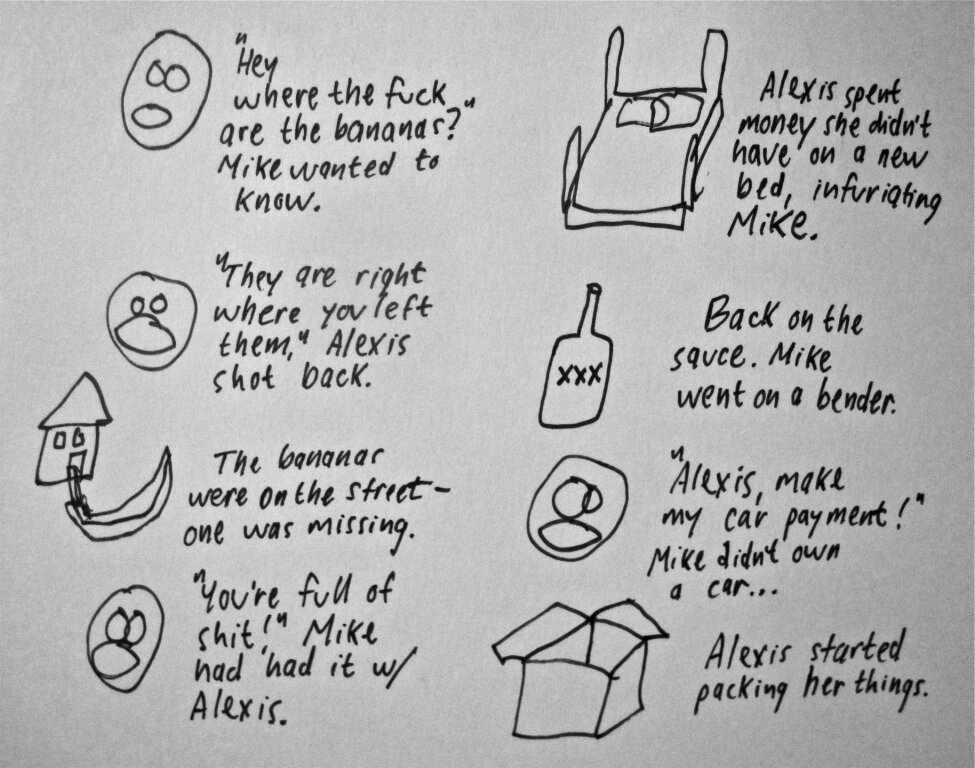 "Hey
where the fuck
are the bananas?"
Mike wanted to
know.
"They are right
where you left
them," Alexis
shot back.
The bananas
were on the street -
one was missing.
"You're full of
shit!" Mike
had had it w/
Alexis.
Alexis spent
money she didn't
have on a new
bed, infuriating
Mike.
XXX
Back on the
sauce. Mike
went on a bender.
"Alexis, make
my car payment!"
Mike didn't own
a car...
Alexis started
packing her things.